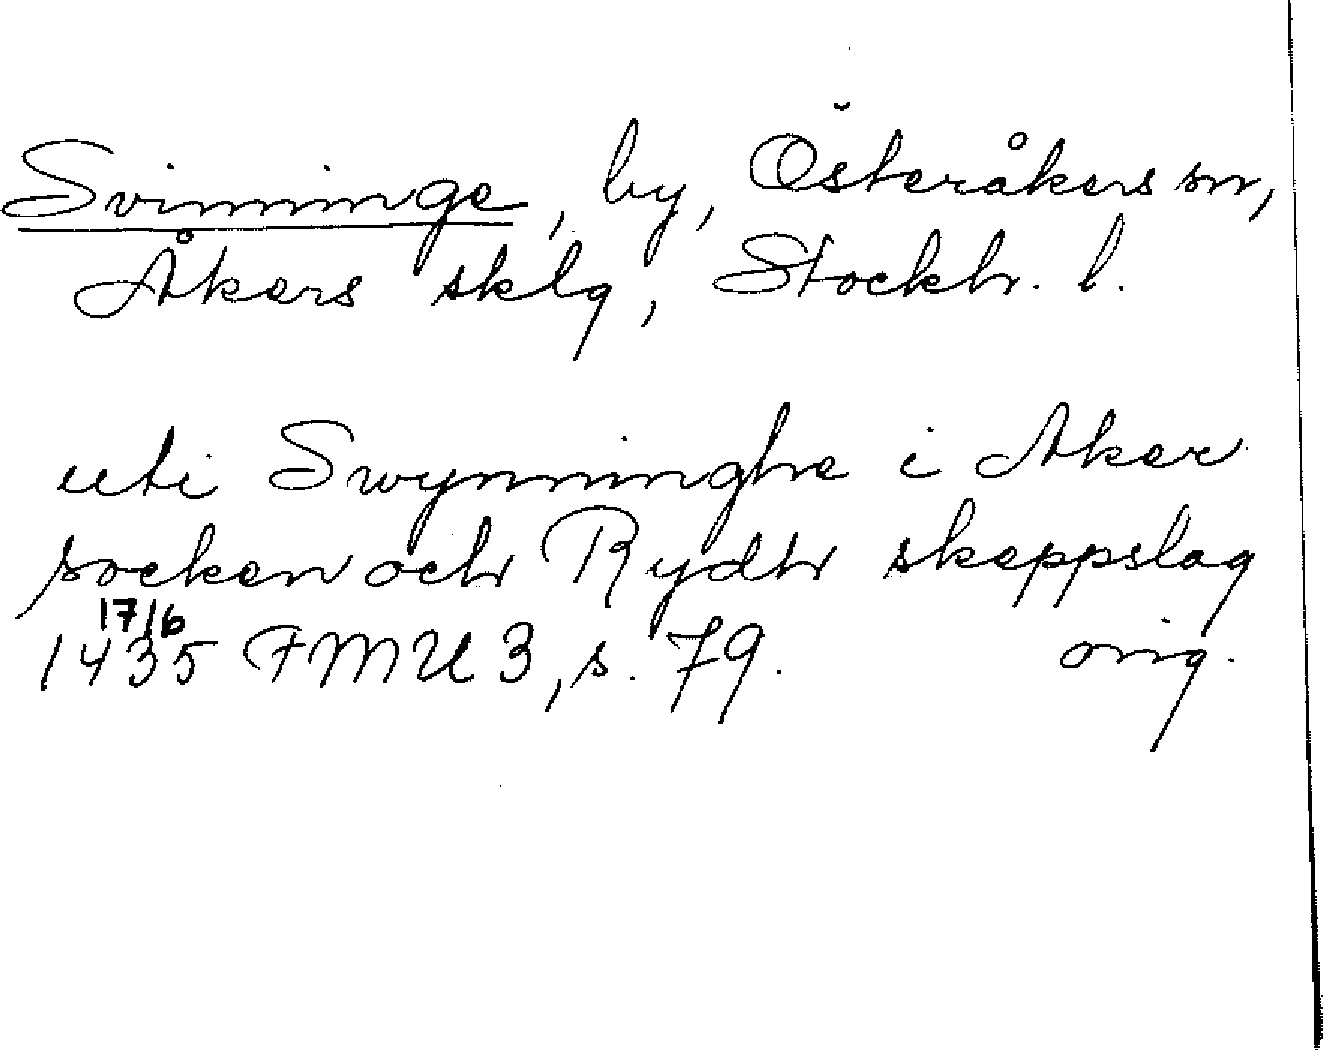 Svinninge, by, Österåkers sn,
Åkers sklg, Stockh. l.
uti Swynninghe i Aker
socken och Rydh skeppslag
17/6
1435 FMU 3, s. 79. orig.